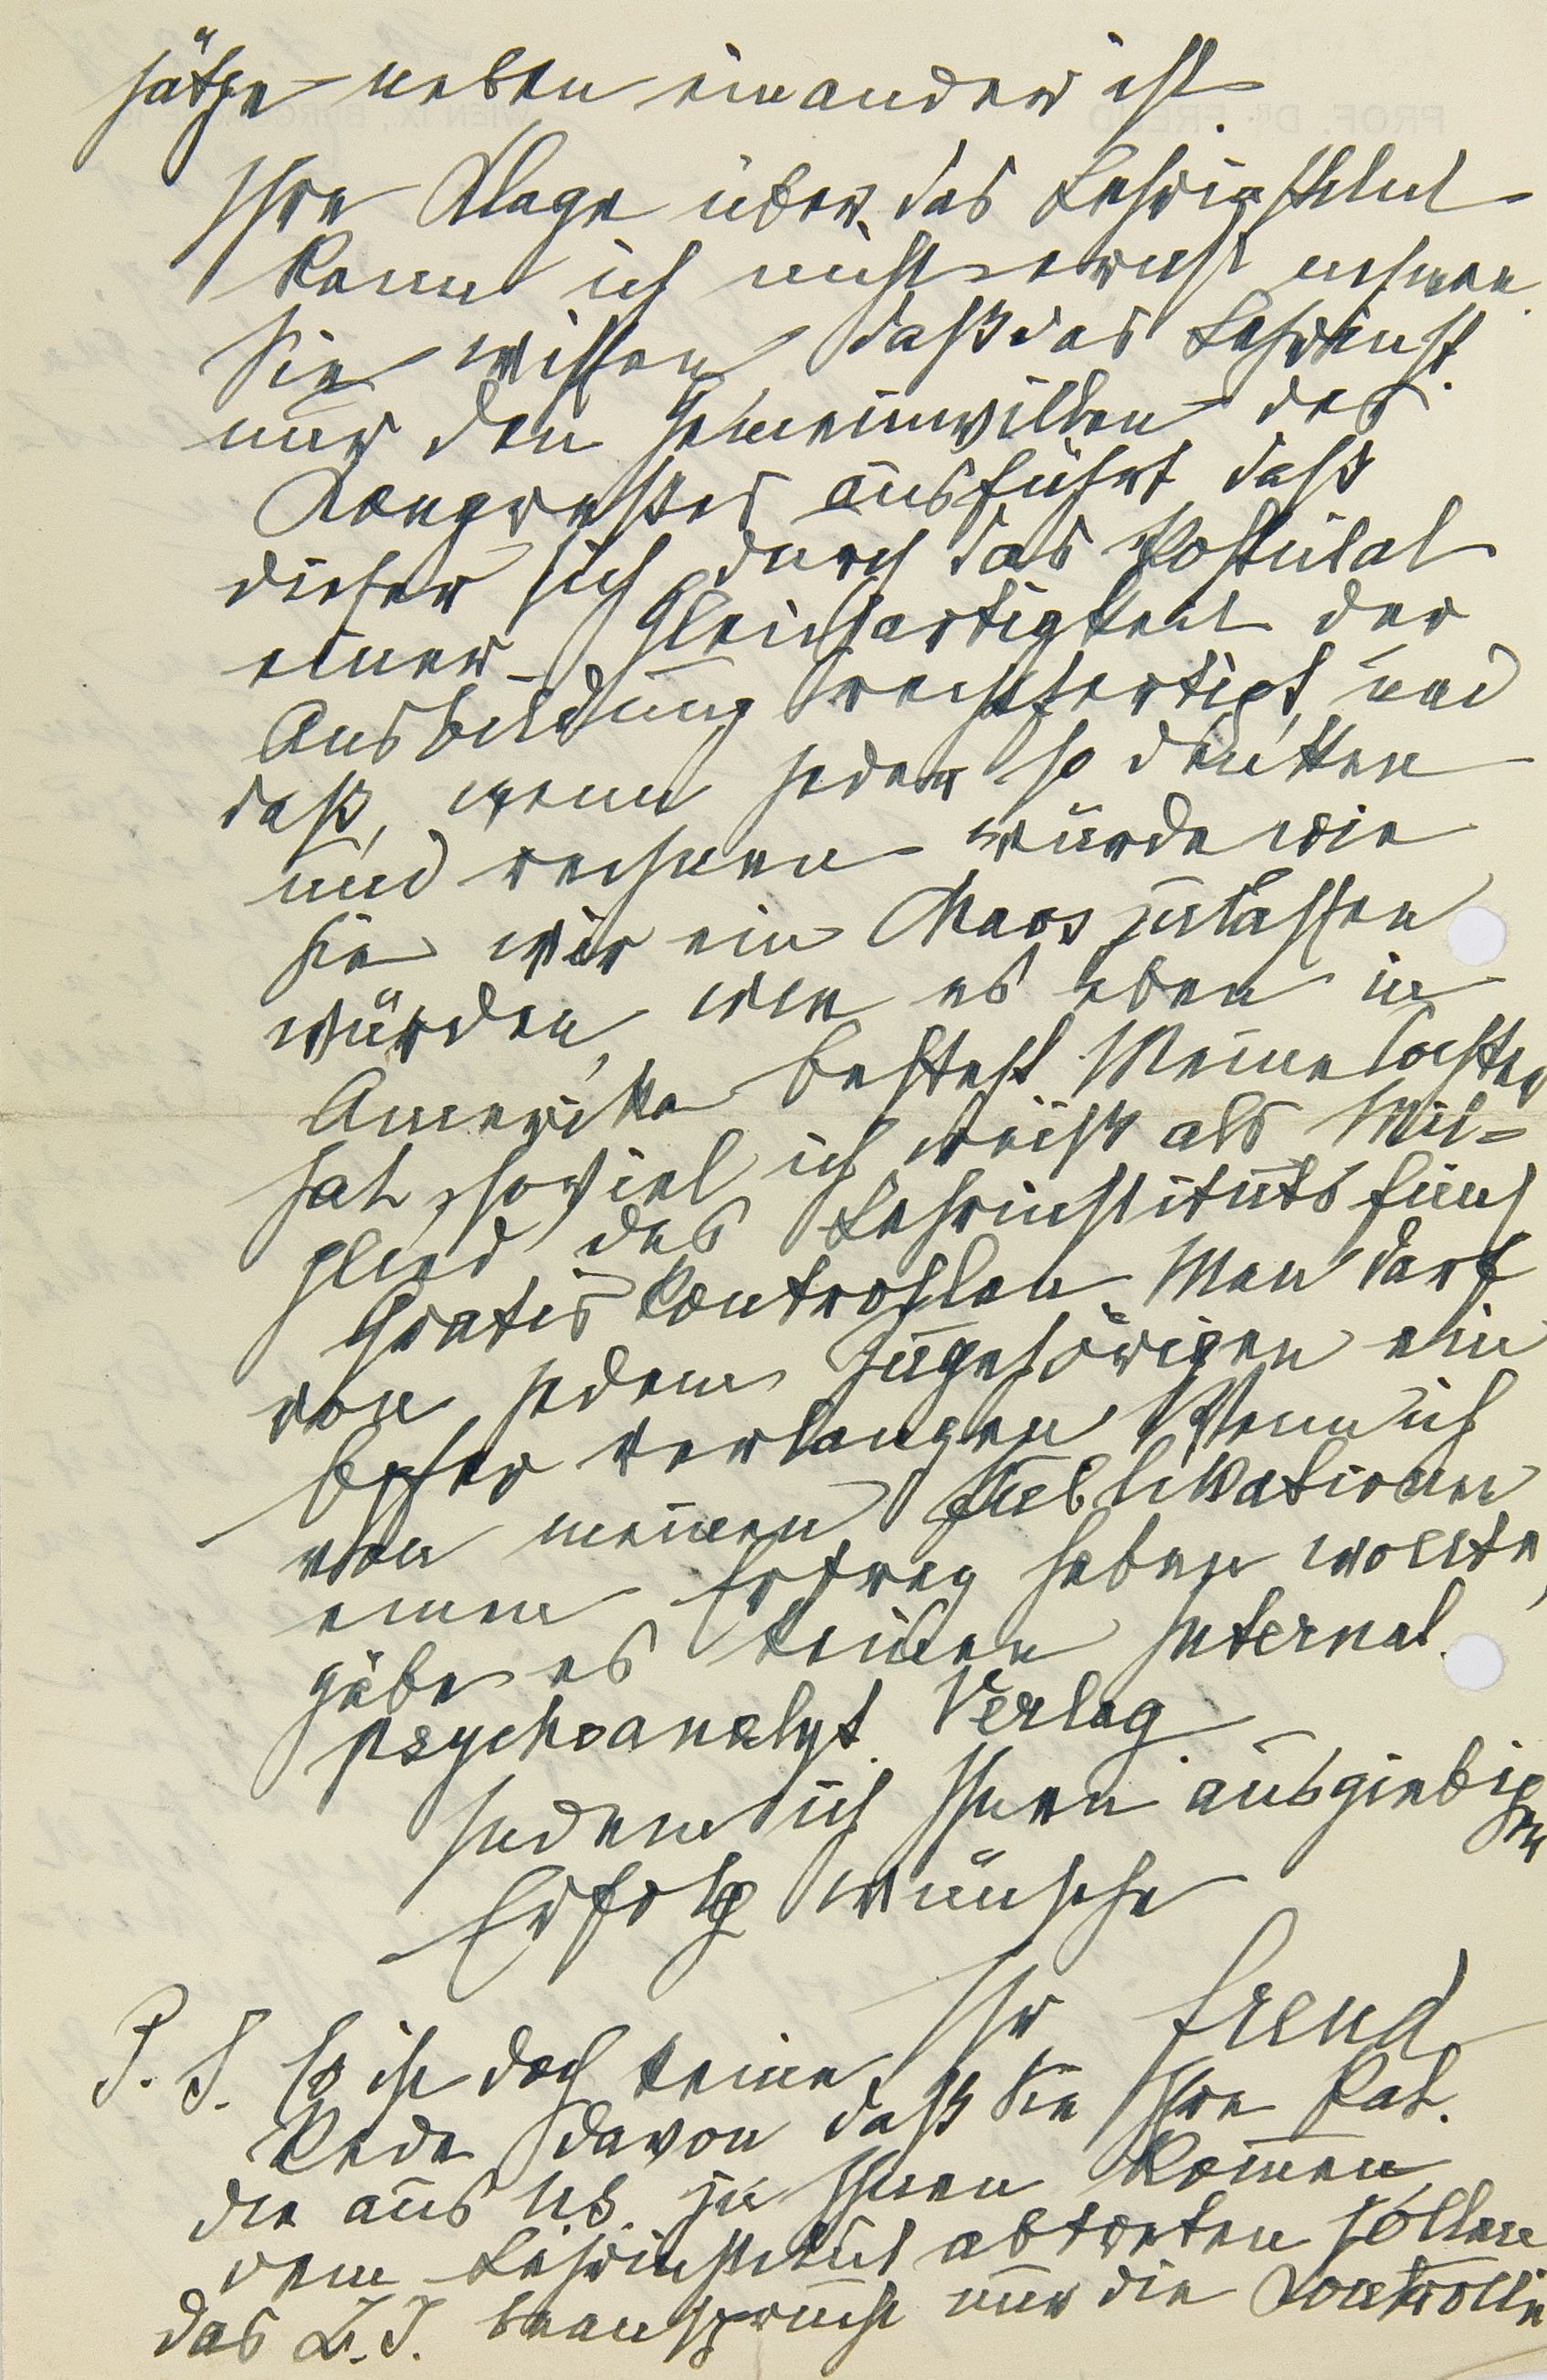 sätze neben einander ist.
Ihre Klage über das Lehrinstitut
kann ich nicht ernst nehmen.
Sie wissen, daß das Lehrinst.
nur den Gemeinwillen des
Kongreßes ausführt daß
dieser sich durch das Postulat
einer Gleichartigkeit der
Ausbildung rechtfertigt, und
daß, wenn jeder so denken
und rechnen würde wie
Sie wir ein Chaos zulassen
würden, wie es eben in
Amerika besteht. Meine Tochter
hat, soviel ich weiß als Mit=
glied des Lehrinstituts fünf
Gratiskontrollen. Man darf
von jedem Zugehörigen ein
Opfer verlangen. Wenn ich
von meinen Publikationen
einen Ertrag haben wollte,
gäbe es keinen Internat.
Psychoanalyt. Verlag.
Indem ich Ihnen ausgiebigen
Erfolg wünsche
Ihr Freud
P. S. Es ist doch keine
Rede davon daß Sie Ihre Pat.
die aus US. zu Ihnen kommen
dem Lehrinstitut abtreten sollen
das L.I. beansprucht nur die Kontrolle